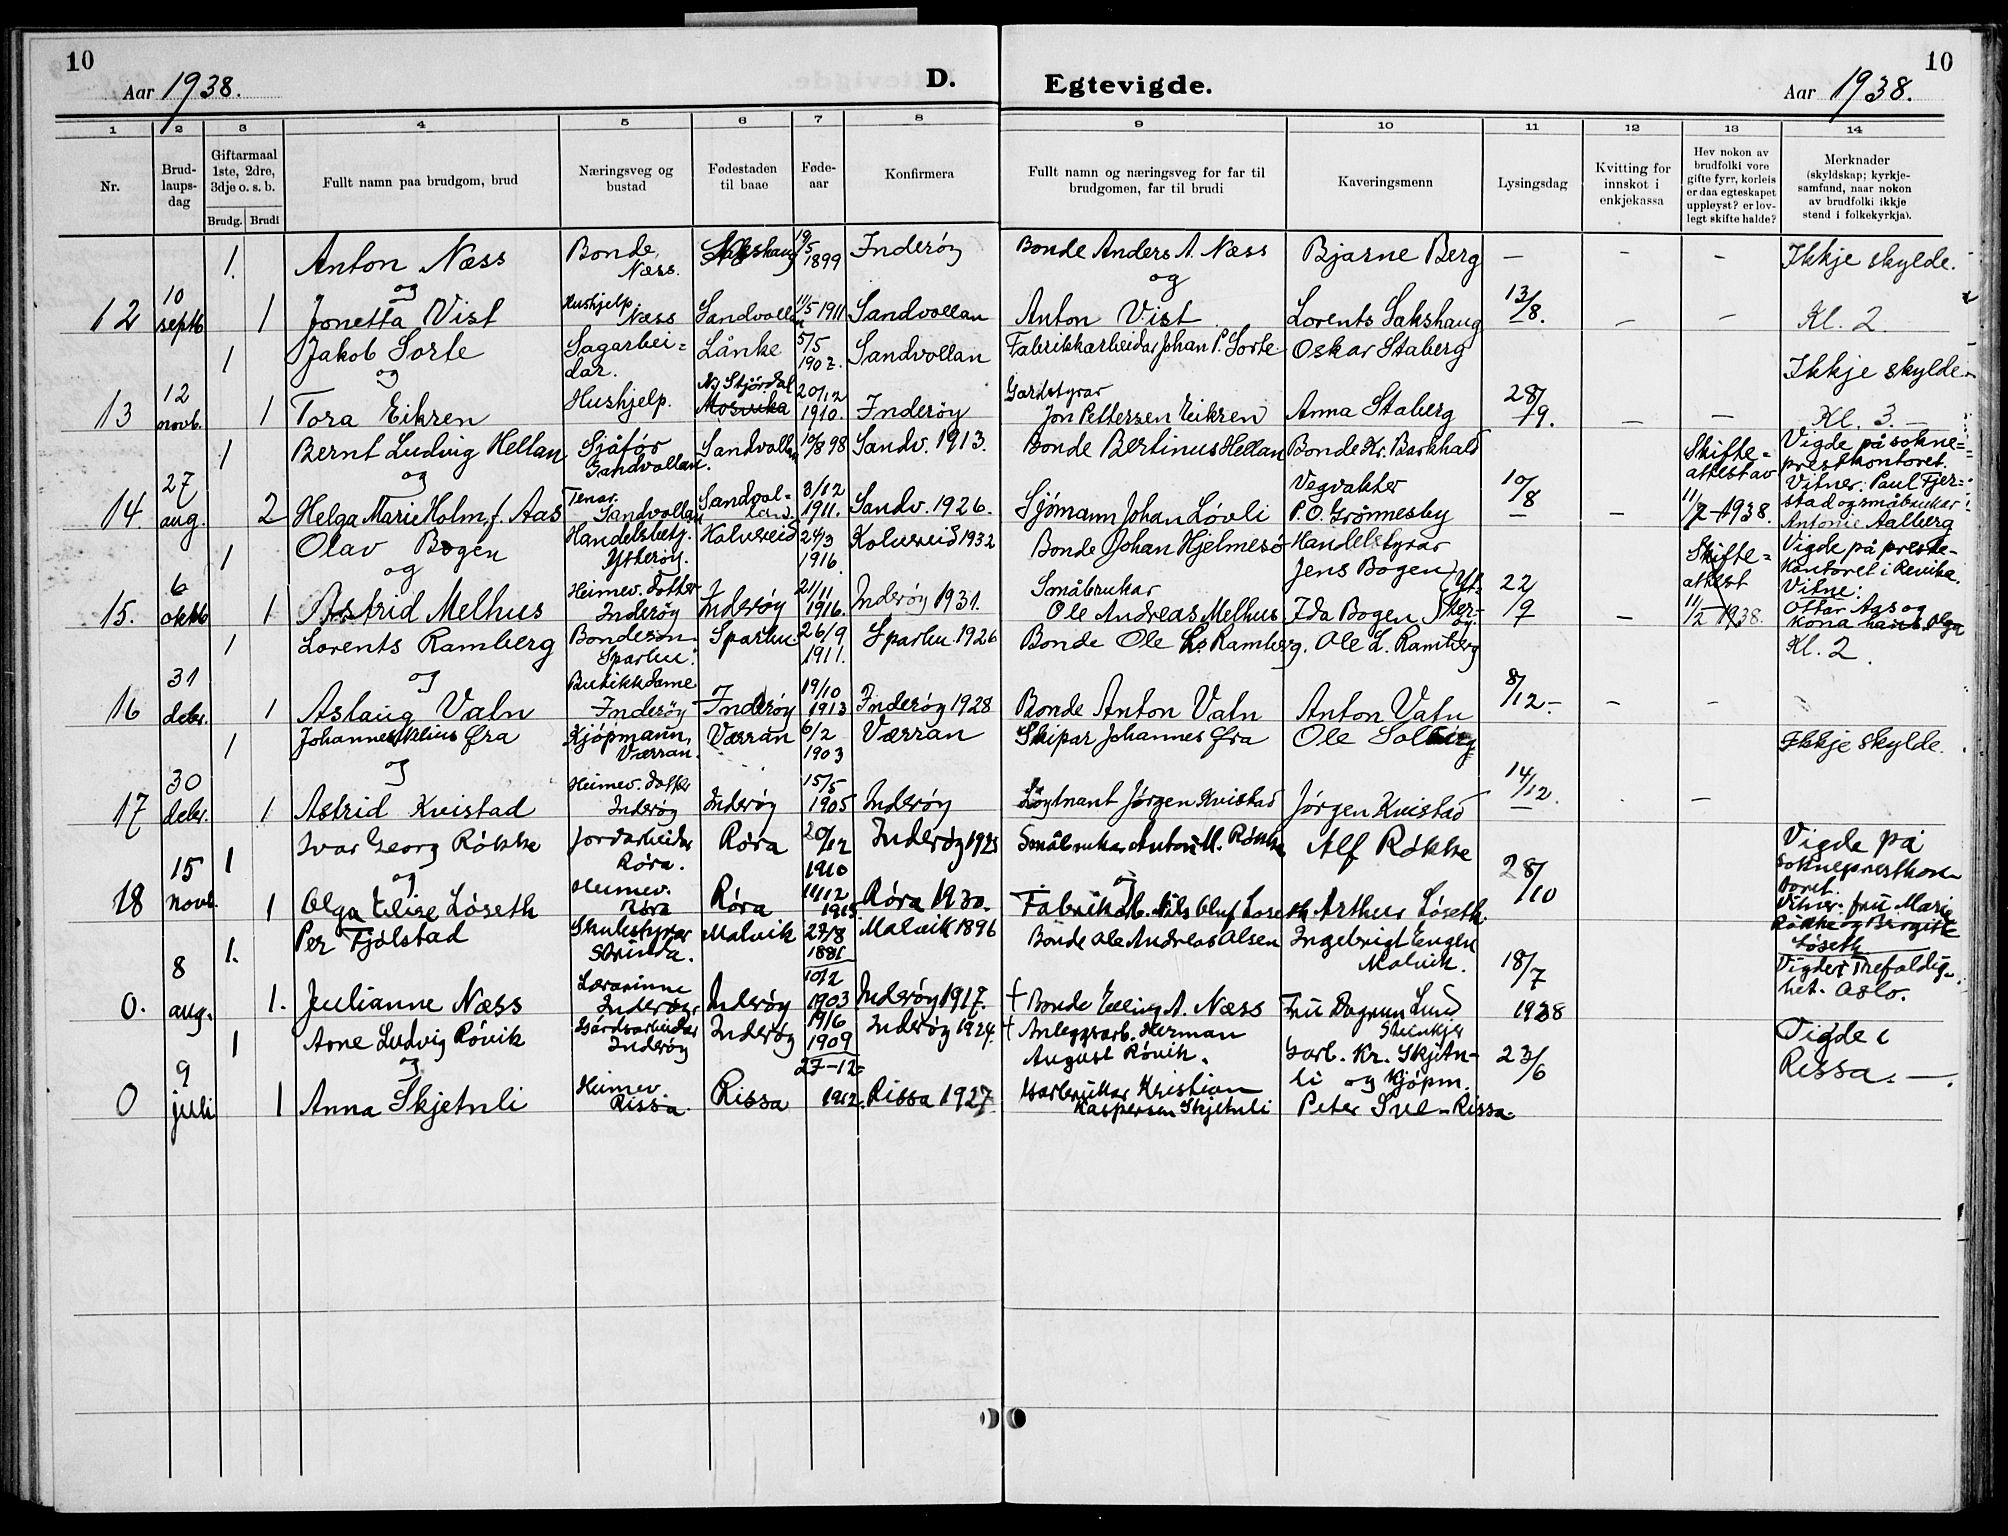 10
Aar 1938.
D.
Egtevigde.
Aar 1938.
10
1 2 3 4 5 6 7 8 9 10 11 12 13 14
Nr.
Brud-
laups-
dag
Giftarmaal
1ste, 2dre,
3dje o. s. b.
Brudg. Brudi
Fullt namn paa brudgom, brud
Næringsveg og
bustad
Fødestaden
til baae
Føde-
aar
Konfirmera
Fullt namn og næringsveg for far til
brudgomen, far til brudi
Kaveringsmenn
Lysingsdag
Kvitting for
innskot i
enkjekassa
Hev nokon av
brudfolki vore
gifte fyrr, korleis
er daa egteskapet
uppløyst? er lov-
legt skifte halde?
Merknader
(skyldskap; kyrkje-
samfund, naar nokon
av brudfolki ikkje
stend i folkekyrkja).
1. Anton Næss Bonde Næss. Sakshaug 19/5 1899 Inderøy Bonde Anders A. Næss Bjarne Berg – – – Ikkje skylde.
og og
12 10 septb 1 Jonetta Vist Hushjelp Næss Sandvollan 11/5 1911 Sandvollan Anton Vist Lorents Sakshaug 13/8. – – Kl. 2.
1 Jakob Sorte Sagarbei=
dar. Lånke 5/5 1902. Sandvollan Fabrikkarbeidar Johan P. Sorte Oskar Staberg Ikkje skylde
og N. Stjørdal
13 12 novb. 1 Tora Eikren Hushjelp. Mosvika 20/12 1910. Inderøy Gardstyrar
Jon Pettersen Eikren Anna Staberg 28/9. – – Kl. 3. –
1 Bernt Ludvig Hellan Sjåfør
Sandvollan. Sandvollan 10/8 98 Sandv. 1913. Bonde Bertinus Hellan Bonde Kr. Barkhald Skifte=
attest av
11/2-1938. Vigde på sokne=
prestkontoret.
Vitner: Paul Fjer=
stad og småbrukar
Antonie Aalberg
og
14. 27 aug. 2 Helga Marie Holm, f. Aas Tenar.
Sandvollan Sandvol=
lan. 3/12 1911. Sandv. 1926. Sjømann Johan Løvli Vegvakter
P. O. Grønnesby 10/8 –
1 Olav Bogen Handelsbetj.
Ytterøy. Kolvereid 24/3 1916. Kolvereid 1932 Bonde Johan Hjelmesø Handelstyrar
Jens Bogen Skifte=
attest
11/2 1938. Vigde på preste-
kontoret i
Vitne:
Ottar Aas og
kona hans Olga
og
15. 6 oktb 1 Astrid Melhus Heimev. dotter
Inderøy Inderøy 21/11 1916. Inderøy 1931. Småbrukar
Ole Andreas Melhus Ida Bogen Ytterøy. 22/9 –
1 Lorents Ramberg Bondeson
Sparbu. Sparbu. 26/9 1911. Sparbu. 1926 Bonde Ole L. Ramberg. Ole L. Ramberg Kl. 2.
og
16 31 debr. 1 Aslaug Vatn Butikkdame
Inderøy Inderøy 19/10 1913 Inderøy 1928 Bonde Anton Vatn Anton Vatn 8/12. – –
1 Johannes Fra Kjøpmann,
Værran. Værran 6/2 1903 Værran Skipar Johannes Fra Ole Solberg Ikkje skylde.
og
17 30 debr. 1 Astrid Kvistad Heimev. dotter
Inderøy Inderøy 15/5 1905 Inderøy Løytnant Jørgen Kvistad Jørgen Kvistad 14/12. –
1 Ivar Georg Røkke Jordarbeidar
Røra. Røra 20/12 1910 Inderøy 1925 Småbrukar Anton M. Røkke Alf Røkke Vigde på
sokneprestkon-
toret.
Vitner: fru Marie
Røkke og Birgitte
Løseth
og og
18 15 novb. 1 Olga Elise Løseth Heimev.
Røra Røra 11/12 1915 Røra 1930. Fabrikkarb. Nils Oluf Løseth Arthur Løseth. 28/10
1. Per Fjølstad Skulestyrar
Strinda. Malvik 27/8 1881 Malvik 1896 Bonde Ole Andreas Olsen Ingebrigt Engen
Malvik. Vigde i Trefaldig-
het. Oslo.
0. 8 aug. 1. Julianne Næss Lærarinne
Inderøy Inderøy 10/2 1903 Inderøy 1917. † Bonde Elling A. Næss Fru Dagrun Lund
Steinkjer 18/7 1938
1 Arne Ludvig Røvik Gårdsarbeidar
Inderøy Inderøy 1916 1909 Inderøy 1924. † Anleggsarb. Herman
August Røvik. Garb. Kr. Skjetn-
li og Kjøpm. Vigde i
Rissa. –
og 27-12-
0 9 juli 1 Anna Skjetnli Heimev.
Rissa. Rissa 1912. Rissa 1927 Kristian
Kaspersen Skjetnli Peter Sve – Rissa. 23/6